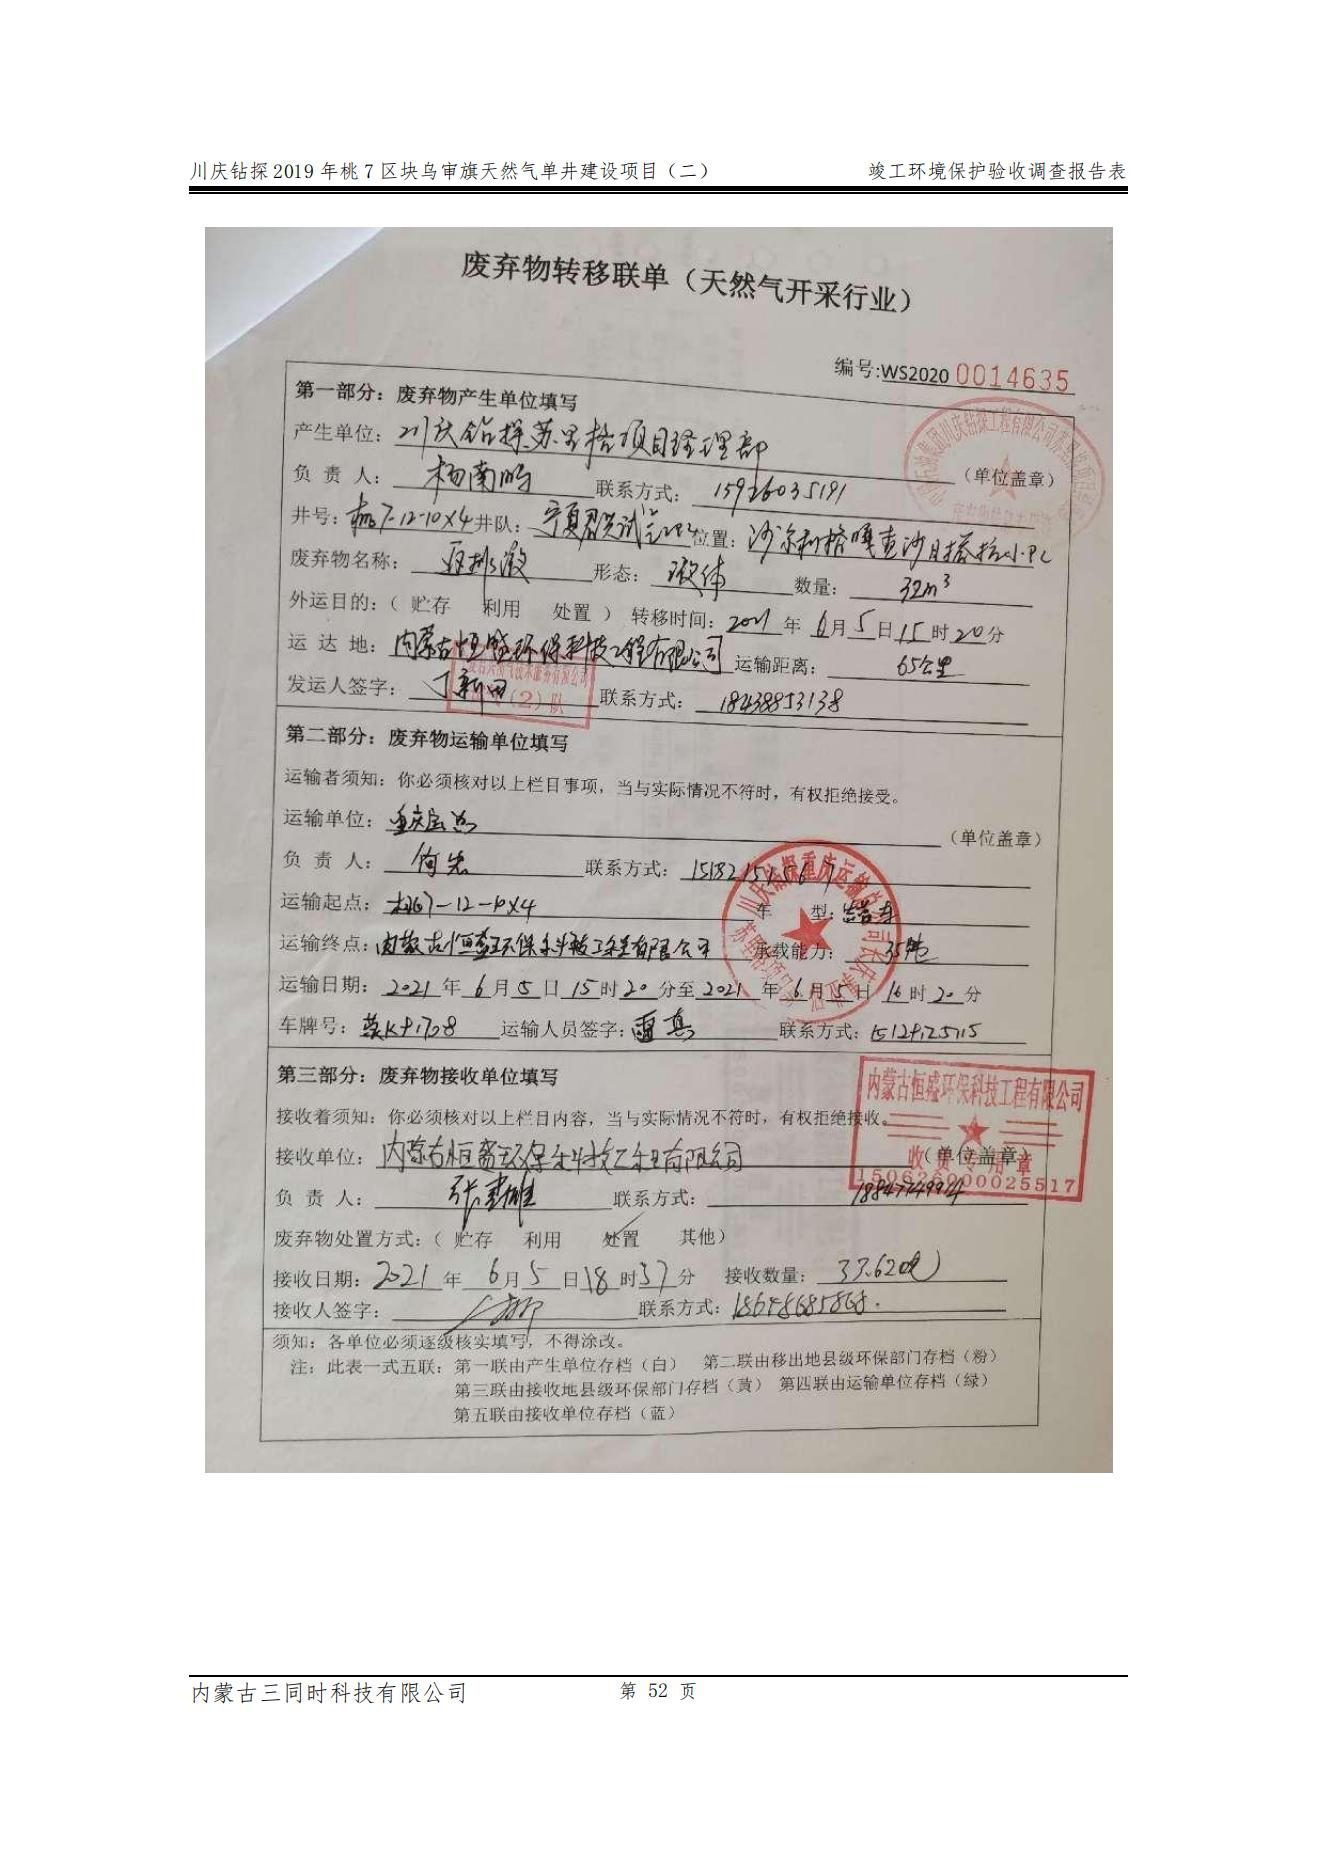 川庆钻探2019年桃7区块乌审旗天然气单井建设项目（二） 竣工环境保护验收调查报告表
废弃物转移联单（天然气开采行业）
编号:WS2020 0014635
第一部分：废弃物产生单位填写
产生单位：川庆钻探苏里格项目经理部
（单位盖章）
负 责 人：杨南鹏 联系方式：15926035191
井号：桃7-12-10X4 井队： 位置：
废弃物名称：返排液 形态：液体 数量：32m³
外运目的：（ 贮存 利用 处置 ） 转移时间：2021年6月5日15时20分
运 达 地：内蒙古恒盛环保科技工程有限公司 运输距离：65公里
发运人签字： 联系方式：18438853138
（2）队
第二部分：废弃物运输单位填写
运输者须知：你必须核对以上栏目事项，当与实际情况不符时，有权拒绝接受。
运输单位：重庆 （单位盖章）
负 责 人： 联系方式：
川庆钻探重庆运输总公司长庆事业部
运输起点：桃7-12-10X4 车 型：
运输终点：内蒙古恒盛环保科技工程有限公司 承载能力：35吨
运输日期：2021年6月5日15时20分至2021年6月5日16时20分
车牌号： 运输人员签字： 联系方式：
第三部分：废弃物接收单位填写
内蒙古恒盛环保科技工程有限公司
接收着须知：你必须核对以上栏目内容，当与实际情况不符时，有权拒绝接收。
接收单位：内蒙古恒盛环保科技工程有限公司 （单位盖章）
收货专用章
150626000025517
负 责 人：张建雄 联系方式：18847749974
废弃物处置方式：（ 贮存 利用 处置 其他）
接收日期：2021年6月5日18时37分 接收数量：33.62吨
接收人签字： 联系方式：18648685868
须知：各单位必须逐级核实填写，不得涂改。
注：此表一式五联：第一联由产生单位存档（白） 第二联由移出地县级环保部门存档（粉）
第三联由接收地县级环保部门存档（黄） 第四联由运输单位存档（绿）
第五联由接收单位存档（蓝）
内蒙古三同时科技有限公司 第 52 页